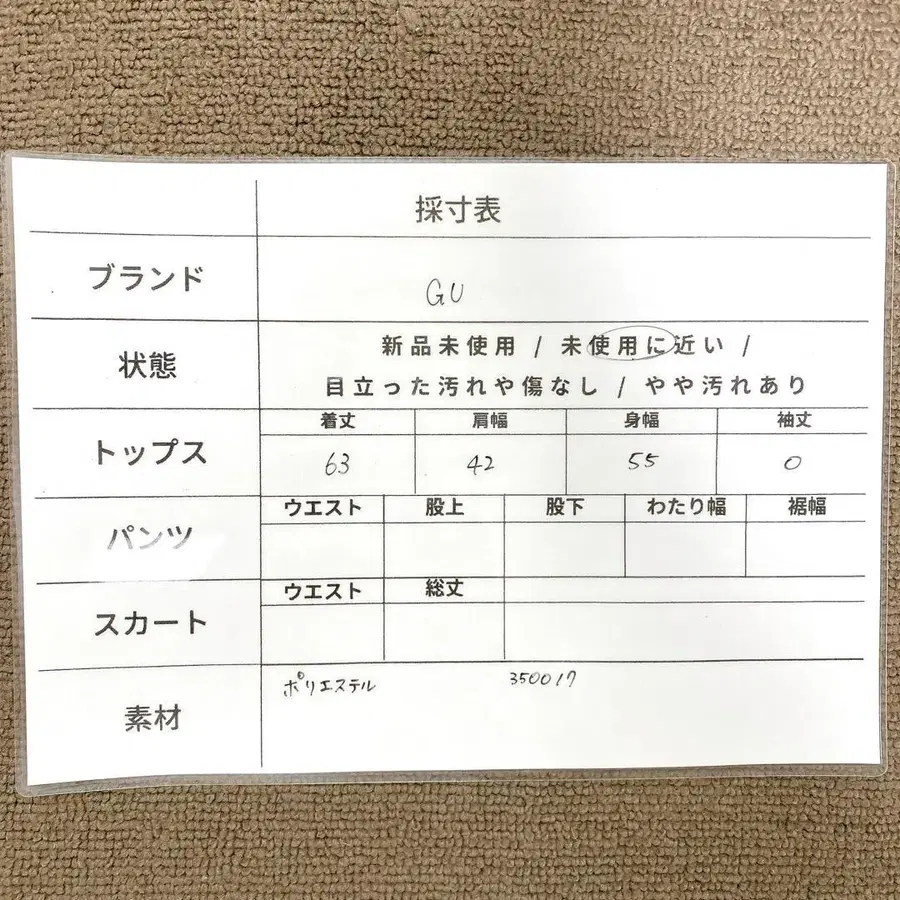 採寸表
ブランド
GU
状態
新品未使用 / 未使用に近い /
目立った汚れや傷なし / やや汚れあり
トップス
着丈 肩幅 身幅 袖丈
63 42 55 0
パンツ
ウエスト 股上 股下 わたり幅 裾幅
スカート
ウエスト 総丈
素材
ポリエステル 350017